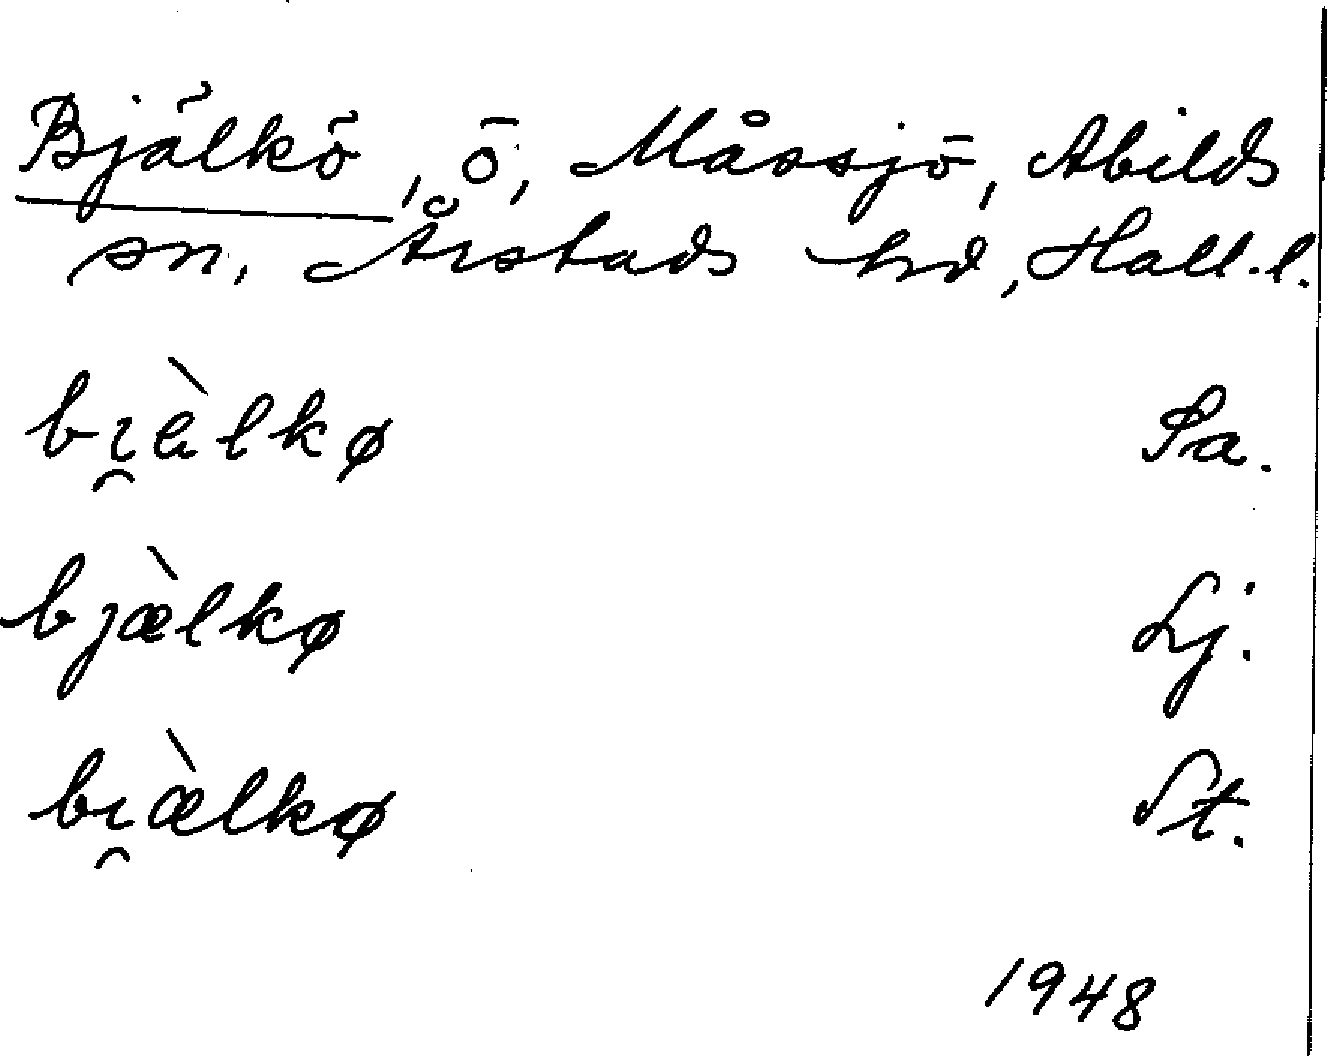 Bjälkö, ö, Måssjö, Abilds
sn, Årstads hd, Hall.l.
bı̯ὲlkø Sa.
bjæ̀lkø Lj.
bı̯æ̀lkø St.
1948